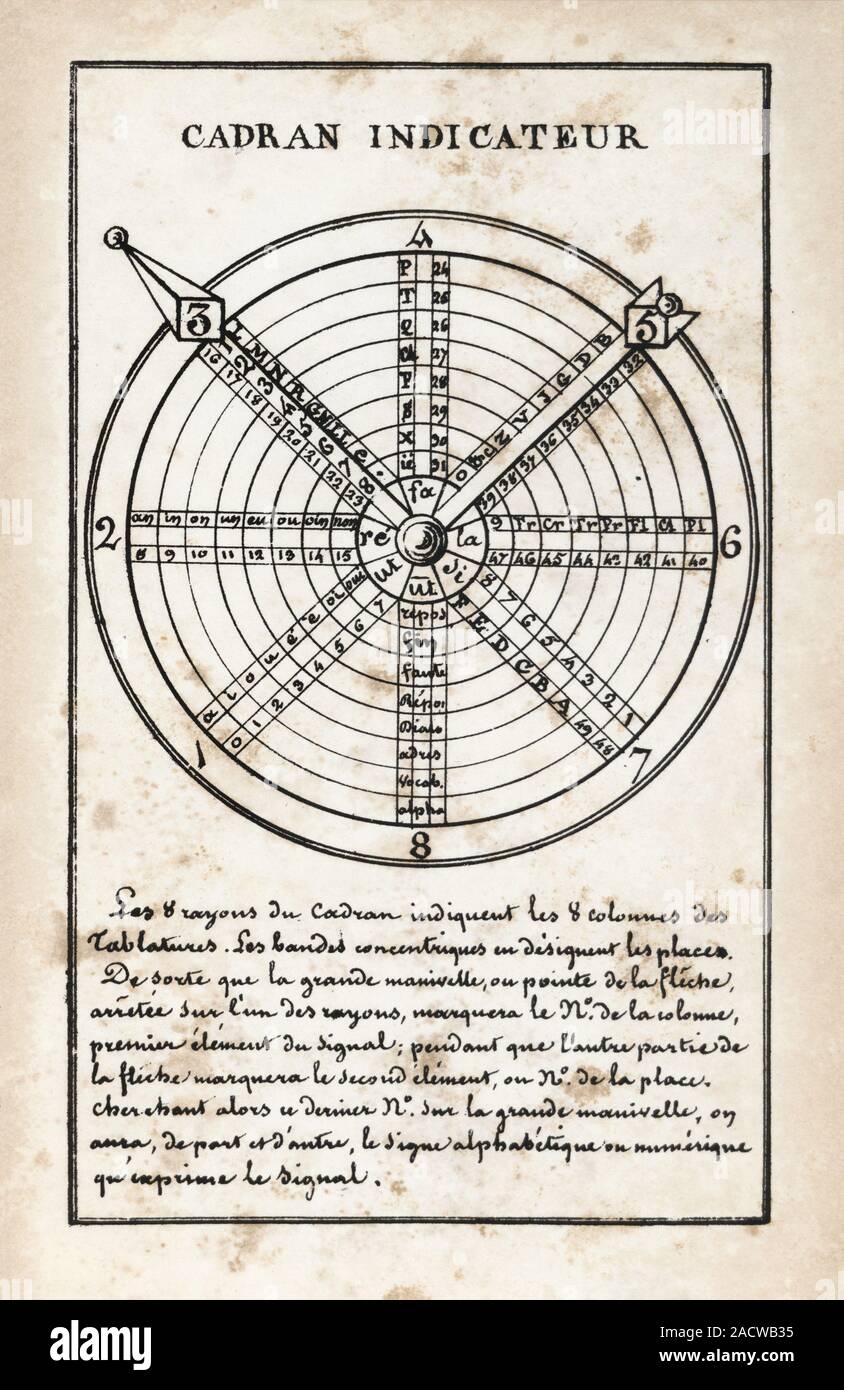 CADRAN INDICATEUR
4
3
5
P 24
T 25
Q 26
Ch 27
P 28
29
X 30
ié 31
L M N R
1 2 3 4 5 6 7 8
16 17 18 19 20 21 22 23
B D G J V Z
32 33 34 35 36 37 38 39
fa
ré
la
ut
si
ut
2
an in on un eu ou oin non
8 9 10 11 12 13 14 15
6
9 Fr Cr Tr Pr Fl Cl Pl
47 46 45 44 43 42 41 40
a i o u é è oi oui
0 1 2 3 4 5 6 7
1
F E D C B A
49 48
8 7 6 5 4 3 2 1
7
repos
fin
faute
Répo.
Dicio
adres
Vocab.
alpha
8
Les 8 rayons du Cadran indiquent les 8 colonnes des
Tablatures. Les bandes concentriques en désignent les places.
De sorte que la grande manivelle, ou pointe de la flèche,
arrêtée sur l'un des rayons, marquera le No. de la colonne,
premier élément du signal; pendant que l'autre partie de
la flèche marquera le second élément, ou No. de la place.
Cherchant alors ce dernier No. sur la grande manivelle, on
aura, de part et d'autre, le signe alphabétique ou numérique
qu'exprime le signal.
alamy
Image ID: 2ACWB35
www.alamy.com